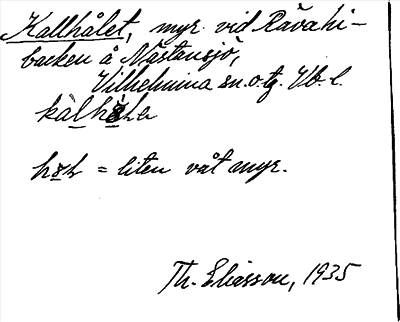 Kallhålet, myr vid Råvahi-
backen å Nästansjö,
Vilhelmina sn. o. tg. Vb. l.
= liten våt myr.
Th. Eliasson, 1935